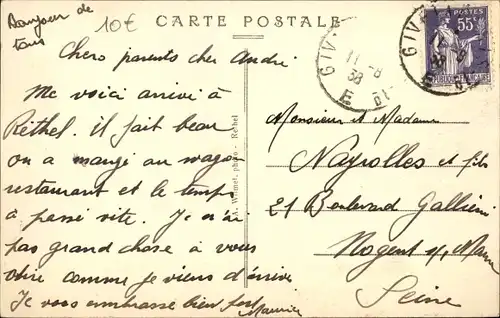 Bonjour de
tous
10€
CARTE POSTALE
Chers parents cher André
Me voici arrivé à
Réthel. Il fait beau
on a mangé au wagon
restaurant et le temps
a passé vite. Je n'ai
pas grand chose à vous
dire comme je viens d'arriver
Je vous embrasse bien fort
Maurice
photo - Rethel
GIV
11 - 8
38
E
POSTES
55c
Monsieur et Madame
Nayrolles et fils
21 Boulevard Galliéni
Nogent s/ Marne
Seine